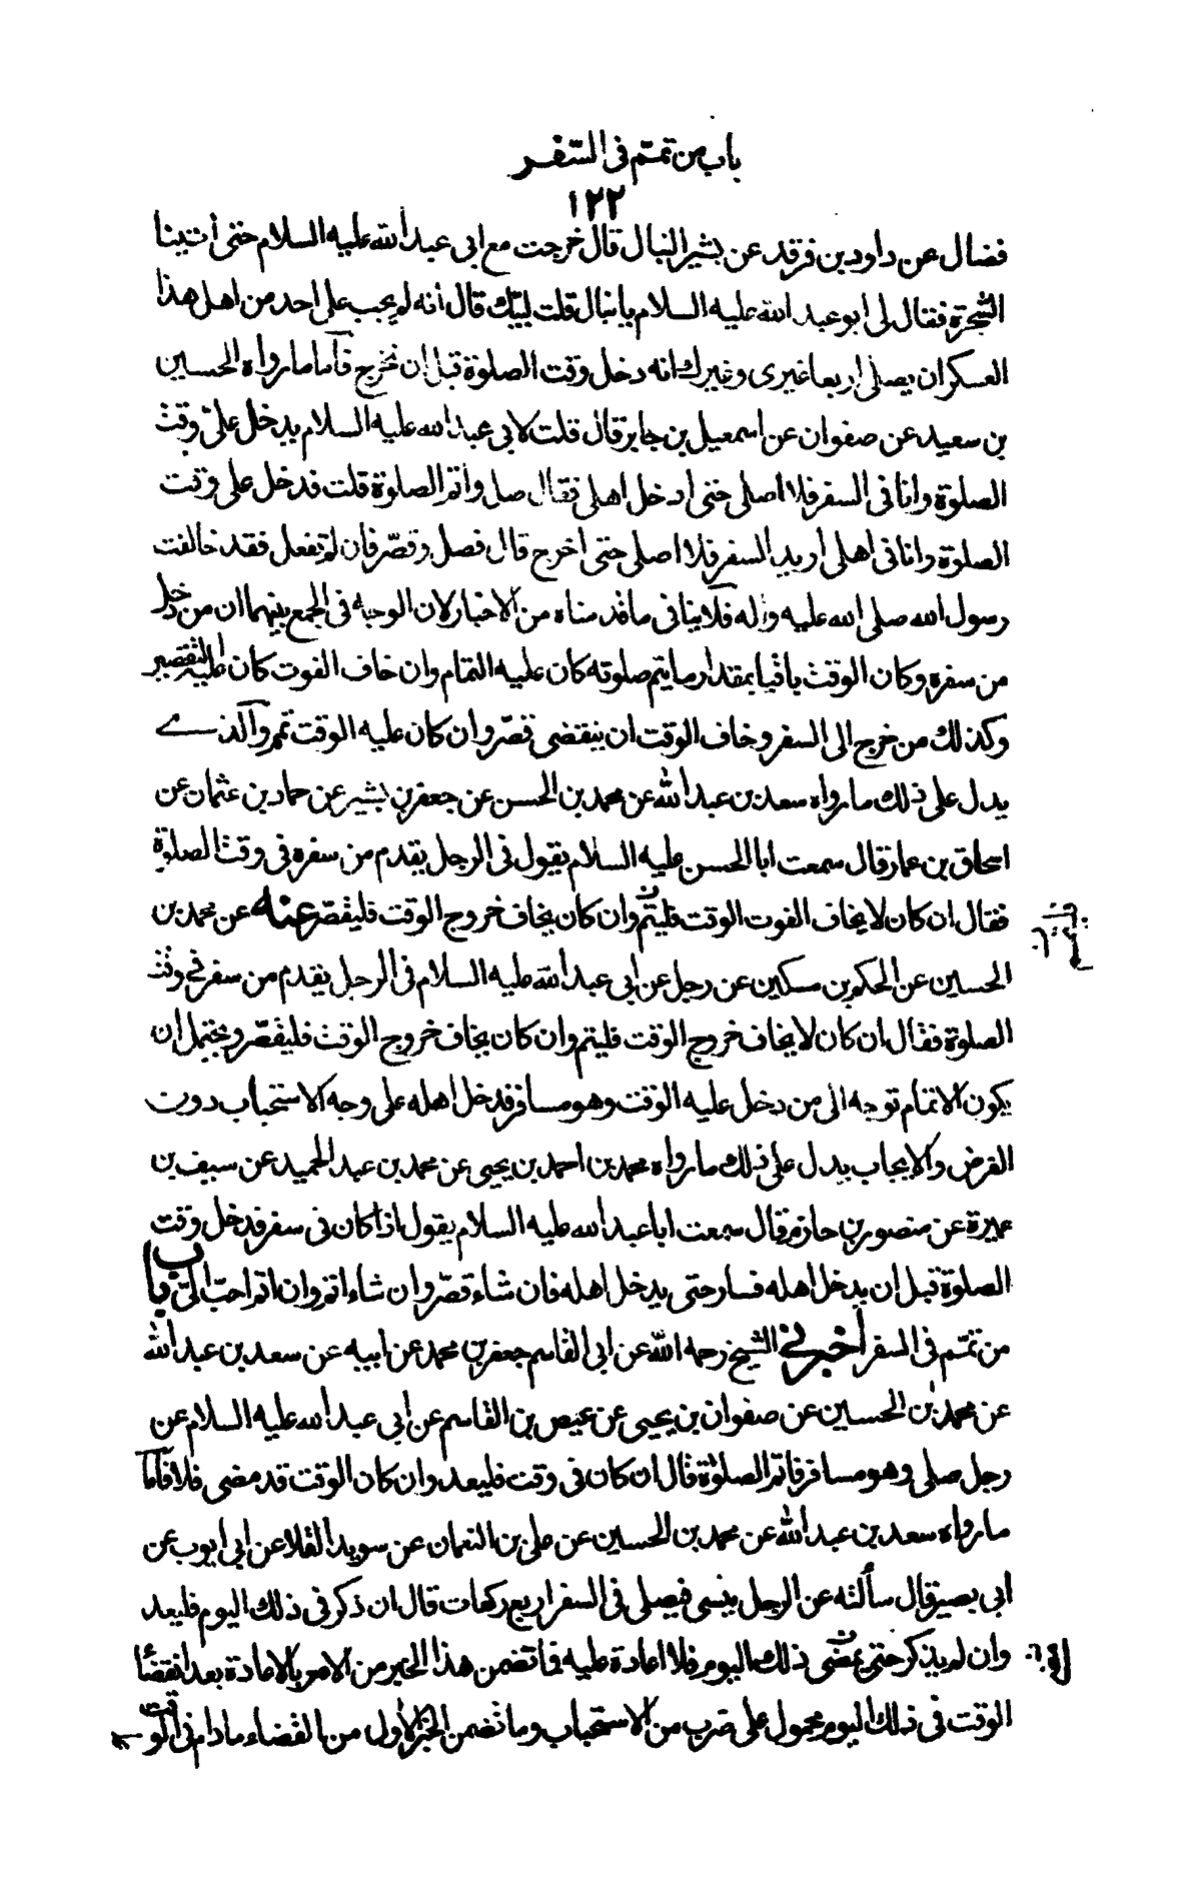 باب من تمّم فى السّفر
١٢٢
فضال عن داود بن فرقد عن بشير النبال قال خرجت مع ابى عبد الله عليه السلام حتى أتينا
الشّجرة فقال لى ابو عبد الله عليه السلام يا نبال قلت لبّيك قال أنه لم يجب على احد من اهل هذا
العسكر ان يصلى اربعا غيرى وغيرك انه دخل وقت الصلوة قبل ان نخرج فآما ما رواه الحسين
بن سعيد عن صفوان عن اسمعيل بن جابر قال قلت لابى عبد الله عليه السلام يدخل علىّ وقت
الصلوة وانا فى السفر فلا اصلى حتى ادخل اهلى فقال صل واتمّ الصلوة قلت فدخل على وقت
الصلوة وانا فى اهلى اريد السفر فلا اصلى حتى اخرج قال فصل وقصّر فان لم تفعل فقد خالفت
رسول الله صلى الله عليه وآله فلا ينافى ما قدمناه من الاخبار لان الوجه فى الجمع بينهما ان من دخل
من سفره وكان الوقت باقيا بمقدار ما يتم صلوته كان عليه التمام وان خاف الفوت كان عليه التقصير
وكذلك من خرج الى السفر وخاف الوقت ان ينقضى قصّر وان كان عليه الوقت تمم والذے
يدل على ذلك ما رواه سعد بن عبد الله عن محمد بن الحسن عن جعفر بن بشير عن حماد بن عثمان عن
اسحاق بن عمار قال سمعت ابا الحسن عليه السلام يقول فى الرجل يقدم من سفره فى وقت الصلوة
فقال ان كان لا يخاف الفوت الوقت فليتم وان كان يخاف خروج الوقت فليقصّر عنه عن محمد بن
الحسين عن الحكم بن مسكين عن رجل عن ابى عبد الله عليه السلام فى الرجل يقدم من سفر فى وقت
الصلوة فقال ان كان لا يخاف خروج الوقت فليتم وان كان يخاف خروج الوقت فليقصّر ويحتمل ان
يكون الاتمام توجه الى من دخل عليه الوقت وهو مسافر فدخل اهله على وجه الاستحباب دون
الفرض والايجاب يدل على ذلك ما رواه محمد بن احمد بن يحيى عن محمد بن عبد الحميد عن سيف بن
عميرة عن منصور بن حازم قال سمعت ابا عبد الله عليه السلام يقول اذا كان فى سفر فدخل وقت
الصلوة قبل ان يدخل اهله فسار حتى يدخل اهله فان شاء قصّر وان شاء اتم وان اتم احبّ الىّ باب
من تمّم فى السفر أخبرنى الشيخ رحمه الله عن ابى القاسم جعفر بن محمد عن ابيه عن سعد بن عبد الله
عن محمد بن الحسين عن صفوان بن يحيى عن عيص بن القاسم عن ابى عبد الله عليه السلام عن
رجل صلى وهو مسافر فاتم الصلوة قال ان كان فى وقت فليعد وان كان الوقت قد مضى فلا فآما
ما رواه سعد بن عبد الله عن محمد بن الحسين عن على بن النعمان عن سويد القلا عن ابى ايوب عن
ابى بصير قال سألته عن الرجل ينسى فيصلى فى السفر اربع ركعات قال ان ذكر فى ذلك اليوم فليعد
وان لم يذكر حتى يمضى ذلك اليوم فلا اعادة عليه فما تضمن هذا الخبر من الامر بالاعادة بعد انقضاء
الوقت فى ذلك اليوم محمول على ضرب من الاستحباب وما تضمن الخبر الاول من القضاء ما دام فى الوقت